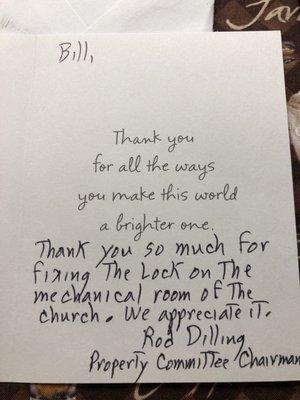 Bill,
Thank you
for all the ways
you make this world
a brighter one.
Thank you so much for
fixing The Lock on The
mechanical room of The
church. We appreciate iT.
Rod Dilling
Property Committee Chairman